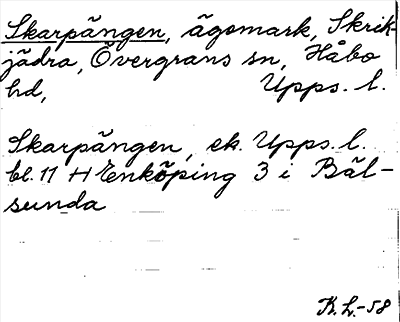 Skarpängen, ägomark, Skrik-
jädra, Övergrans sn, Håbo
hd, Upps. l.
Skarpängen, ek. Upps. l.
bl. 11 H Enköping 3 i Bäl-
sunda
K. L. -58